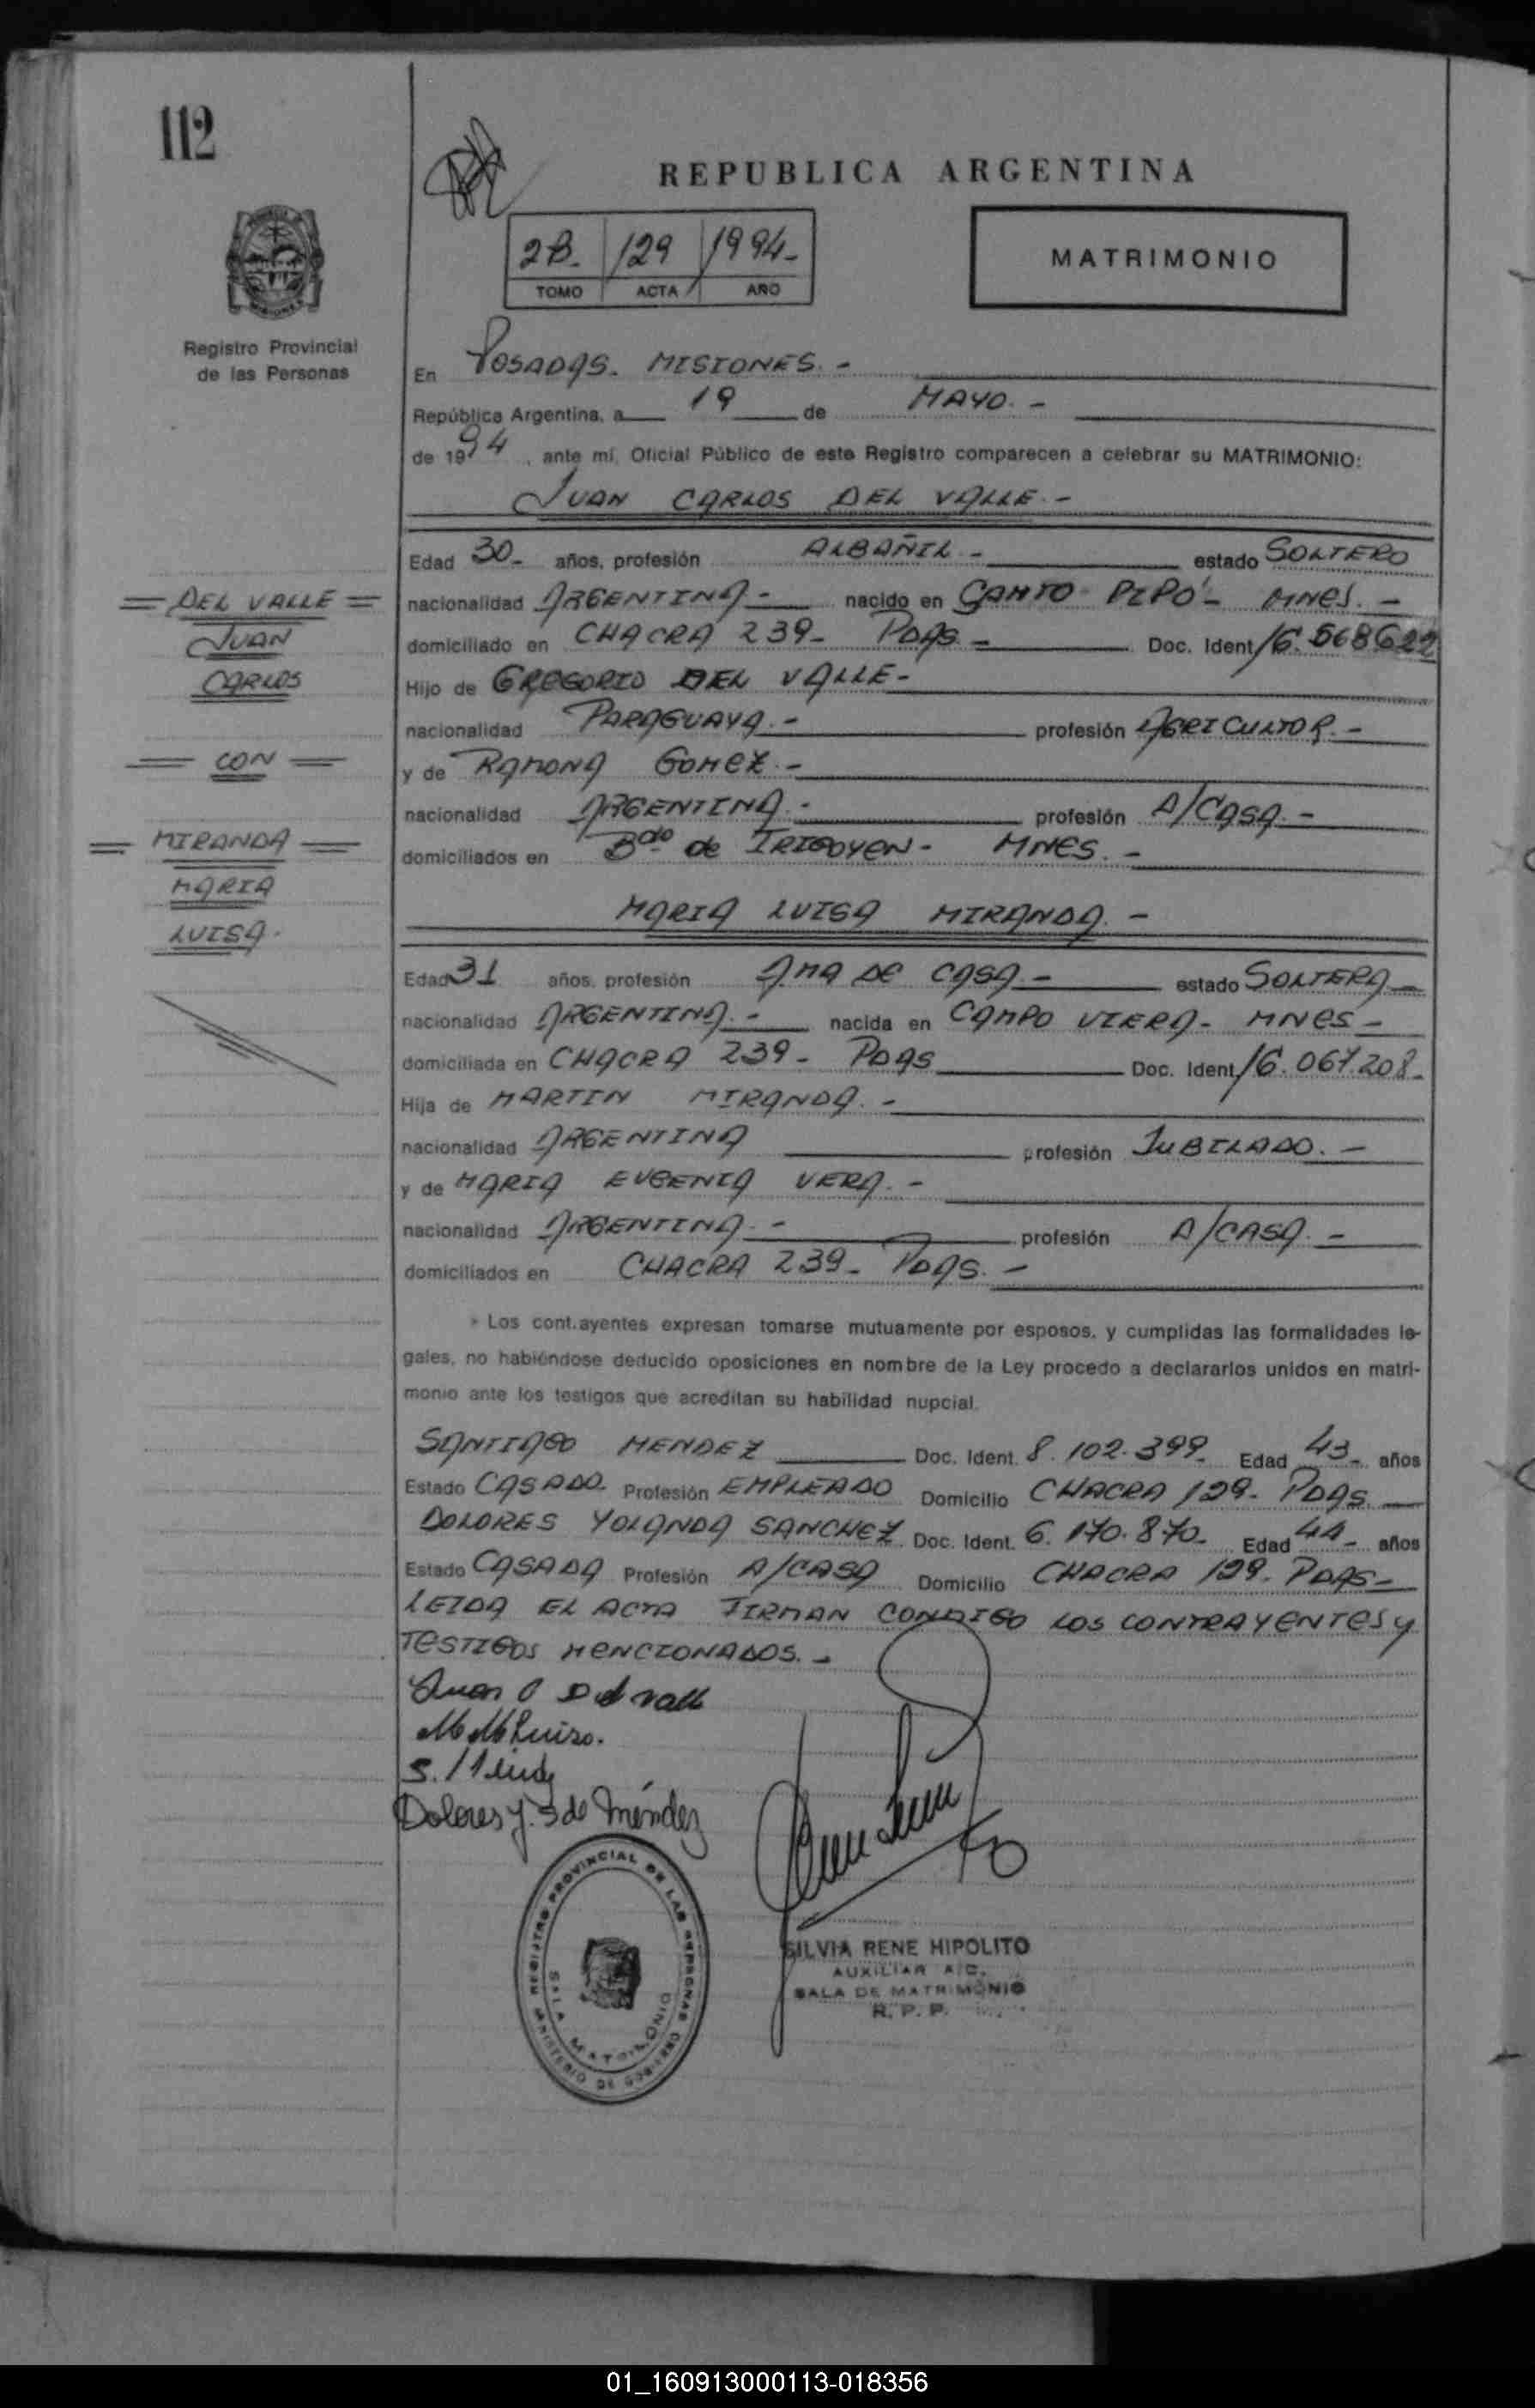 112
REPUBLICA ARGENTINA
2B. 129 1994-
TOMO ACTA AÑO
MATRIMONIO
Registro Provincial
de las Personas
En POSADAS. MISIONES. -
República Argentina, a 19 de MAYO. -
de 1994, ante mí, Oficial Público de este Registro comparecen a celebrar su MATRIMONIO:
JUAN CARLOS DEL VALLE -
Edad 30- años, profesión ALBAÑIL - estado SOLTERO
nacionalidad ARGENTINA - nacido en GAMTO PIPÓ - MNES. -
domiciliado en CHACRA 239- PDAS - Doc. Ident 16.568622
Hijo de GREGORIO DEL VALLE -
nacionalidad PARAGUAYA. - profesión AGRICULTOR. -
y de RAMONA GOMEZ -
nacionalidad ARGENTINA. - profesión A/CASA. -
domiciliados en Bdo de IRIGOYEN - MNES. -
MARIA LUISA MIRANDA. -
Edad 31 años, profesión AMA DE CASA. - estado SOLTERA -
nacionalidad ARGENTINA. - nacida en CAMPO VIERA - MNES -
domiciliada en CHACRA 239- PDAS Doc. Ident 16.067.208-
Hija de MARTIN MIRANDA. -
nacionalidad ARGENTINA profesión JUBILADO. -
y de MARIA EUGENIA VERA. -
nacionalidad ARGENTINA. - profesión A/CASA. -
domiciliados en CHACRA 239- PDAS. -
Los cont.ayentes expresan tomarse mutuamente por esposos, y cumplidas las formalidades le-
gales, no habiéndose deducido oposiciones en nombre de la Ley procedo a declararlos unidos en matri-
monio ante los testigos que acreditan su habilidad nupcial.
SANTIAGO MENDEZ Doc. Ident. 8.102.399- Edad 43- años
Estado CASADO- Profesión EMPLEADO Domicilio CHACRA 129- PDAS
DOLORES YOLANDA SANCHEZ Doc. Ident. 6.170.870- Edad 44- años
Estado CASADA Profesión A/CASA Domicilio CHACRA 129- PDAS-
LEIDA EL ACTA FIRMAN CONMIGO LOS CONTRAYENTES y
TESTIGOS MENCIONADOS. -
Juan C Del valle
Dolores Y. S de Méndez
DEL VALLE
JUAN
CARLOS
CON
MIRANDA
MARIA
LUISA.
REGISTRO PROVINCIAL DE LAS PERSONAS
MINISTERIO DE GOBIERNO
SALA MATRIMONIO
SILVIA RENE HIPOLITO
AUXILIAR A/C.
SALA DE MATRIMONIO
R. P. P.
01_160913000113-018356